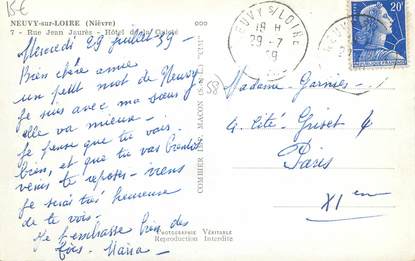 15€
NEUVY-sur-LOIRE (Nièvre)
7 - Rue Jean Jaurès - Hôtel de la Gaieté
Mercredi 29 juillet 59
Bien chère amie
un petit mot de Neuvy
Je suis avec ma sœur
elle va mieux -
Je pense que tu vas
bien, et que tu vas bientôt
venir te reposer - viens
je serai très heureuse
de te voir -
Je t'embrasse bien des
fois - Maria -
COMBIER IMP. MACON (S.-&-L.) "CIM"
58
PHOTOGRAPHIE VÉRITABLE
Reproduction Interdite
NEUVY S/LOIRE
18 H
29-7
20F
Madame Garnier
4. Cité Griset 4
Paris
XI em